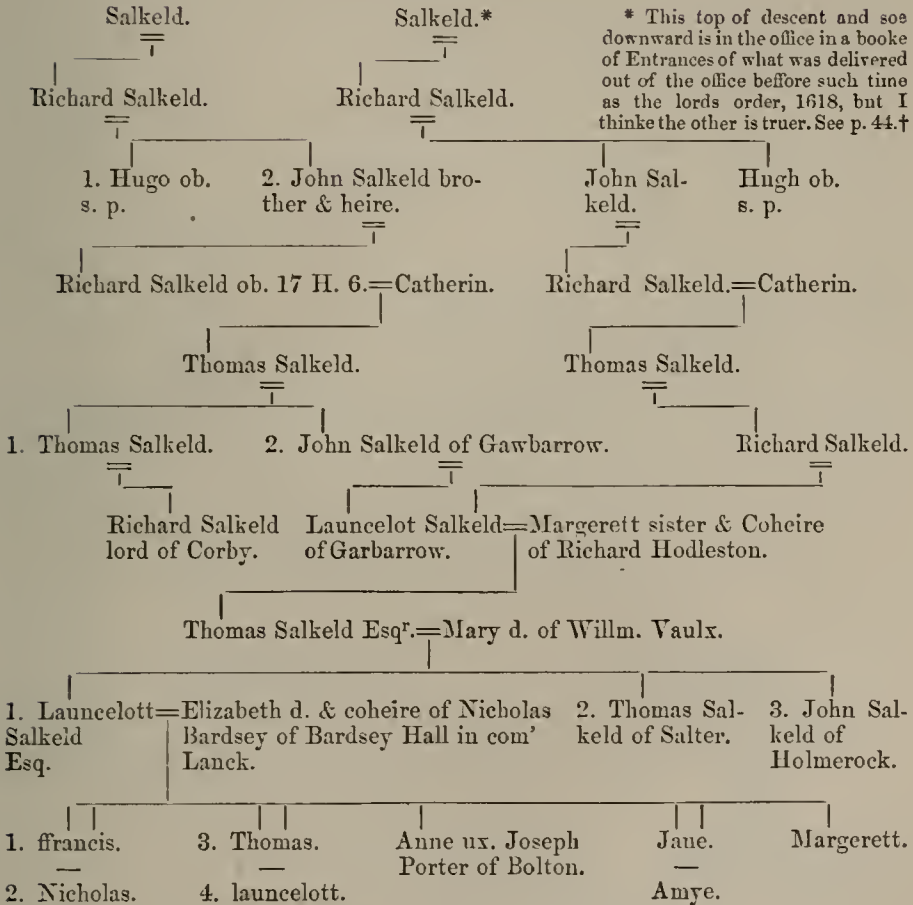 Salkeld.
Salkeld.*
* This top of descent and soe
downward is in the office in a booke
of Entrances of what was delivered
out of the office beffore such time
as the lords order, 1618, but I
thinke the other is truer. See p. 44.†
Richard Salkeld.
Richard Salkeld.
1. Hugo ob.
s. p.
2. John Salkeld bro-
ther & heire.
John Sal-
keld.
Hugh ob.
s. p.
Richard Salkeld ob. 17 H. 6.=Catherin.
Richard Salkeld.=Catherin.
Thomas Salkeld.
Thomas Salkeld.
1. Thomas Salkeld.
2. John Salkeld of Gawbarrow.
Richard Salkeld.
Richard Salkeld
lord of Corby.
Launcelot Salkeld=Margerett sister & Coheire
of Garbarrow.
of Richard Hodleston.
Thomas Salkeld Esqr.=Mary d. of Willm. Vaulx.
1. Launcelott=Elizabeth d. & coheire of Nicholas
Salkeld
Esq.
Bardsey of Bardsey Hall in com'
Lanck.
2. Thomas Sal-
keld of Salter.
3. John Sal-
keld of
Holmerock.
1. ffrancis.
2. Nicholas.
3. Thomas.
4. launcelott.
Anne ux. Joseph
Porter of Bolton.
Jane.
Amye.
Margerett.